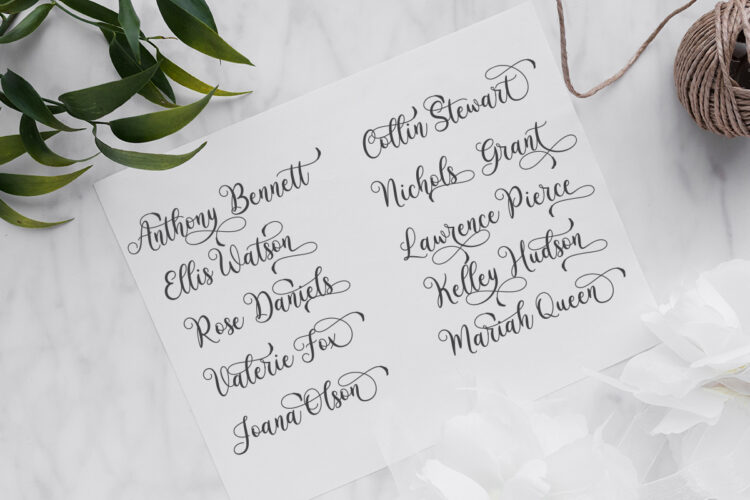 Anthony Bennett
Ellis Watson
Rose Daniels
Valerie Fox
Joana Olson
Collin Stewart
Nichols Grant
Lawrence Pierce
Kelley Hudson
Mariah Queen